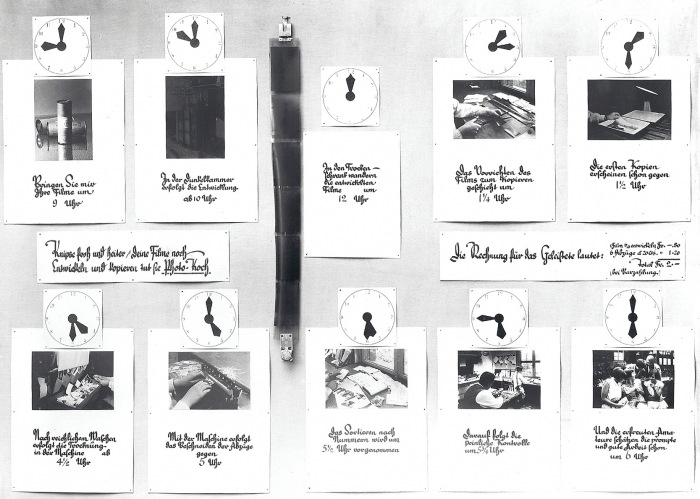 Bringen Sie mir
Ihre Filme um
9 Uhr
In der Dunkelkammer
erfolgt die Entwicklung
ab 10 Uhr
In den Trocken-
schrank wandern
die entwickelten
Filme um
12 Uhr
Das Vorrichten des
Films zum Kopieren
geschieht um
1¼ Uhr
Die ersten Kopien
erscheinen schon gegen
1½ Uhr
Knipse froh und heiter / deine Filme noch
Entwickeln und kopieren tut sie Photo-Koch.
Die Rechnung für das Geleistete lautet:
Film zu entwickeln Fr. -.80
6 Abzüge à 20 Cts. " 1.20
Total Fr. 2.-
(bei Barzahlung.)
Nach reichlichem Waschen
erfolgt die Trocknung
in der Maschine ab
4½ Uhr
Mit der Maschine erfolgt
das Beschneiden der Abzüge
gegen
5 Uhr
Das Sortieren nach
Nummern wird um
5½ Uhr vorgenommen
Darauf folgt die
peinliche Kontrolle
um 5¾ Uhr
Und die erfreuten Ama-
teure schätzen die prompte
und gute Arbeit schon
um 6 Uhr